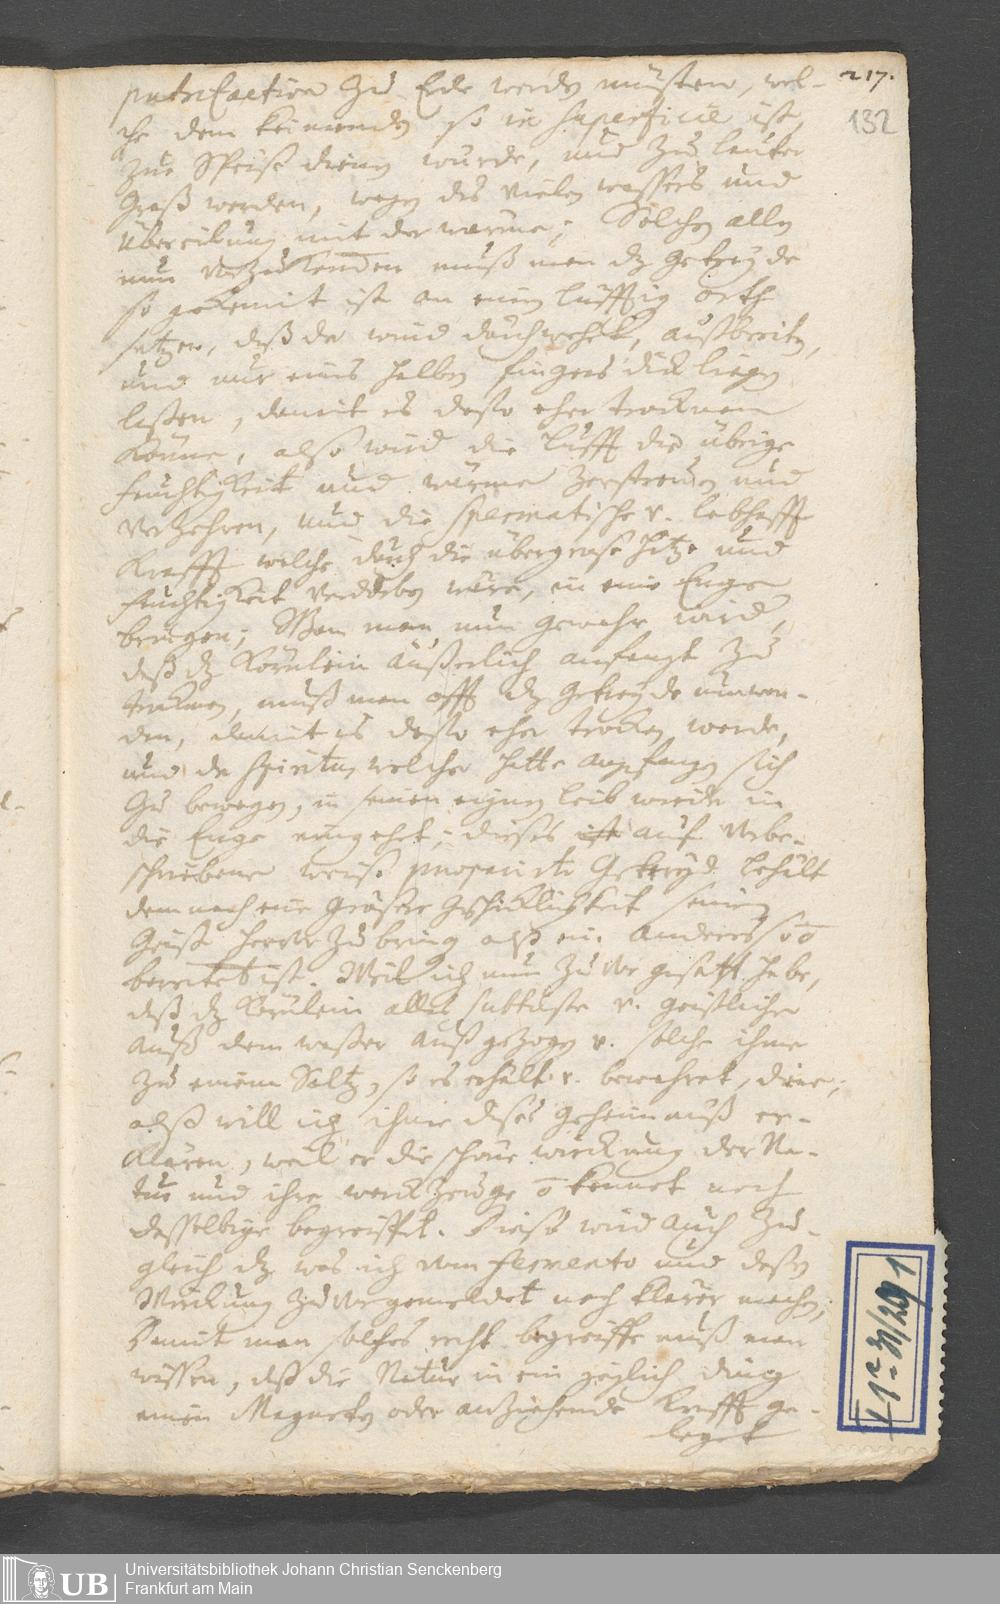 217.
132
putrefaction zu Erde werden müsten, wel-
che dem keimenden so in superficie ist,
zur Speiß dienen würde, und zu lauter
Graß werden, wegen des vielen waßers und
übereilung mit der wärme; Solchen allen
nun vorzukommen muß man dz getreyde
so gekeimt ist an einen lufftig orth
setzen, daß der wind durchwehet, außbreiten,
und nur eines halben fingers dick liegen
laßen, damit es desto eher trocknen
könne, also wird die lufft die übrige
feuchtigkeit und wärme zerstreuen und
verzehren, und die spermatische v. lebhaffte
Krafft welche durch die übergroße hitze und
feuchtigkeit verderben würde, in eine Enge
bringen; Wan man nun gewahr wird,
daß dz Körnlein äußerlich anfangt zu
trucknen, muß man offt dz getreyde umwen-
den, damit es desto eher trocken werde,
und der spiritus welcher hatte angefangen sich
zu bewegen, in seinen eignen leib wieder in
die Enge eingehet; dieses auf vorbe-
schriebene weise præparirte Getreyd behält
demnach eine größere geschicklichkeit seinen
Geist hervor zu bringen alß ein anders so
bereitet ist. Weil ich nun zuvor gesagt habe,
daß dz Körnlein alles subtilste v. geistliche
auß dem waßer außgezogen v. solche ihme
zu einem Saltz, so es erhält v. bewahret, diene,
alß will ich ihme dises geheimnuß er-
klären, weil er die schöne wirckung der Na-
tur und ihre werckzeuge kennet noch
dasselbige begreiffet. Dieses wird auch zu-
gleich dz was ich vom fermento und deßen
Wirckung zuvor gemeldet noch klärer machen,
Damit man solches recht begreiffe muß man
wissen, daß die Natur in ein jeglich ding
einen Magneten oder anziehende Krafft ge-
leget
Universitätsbibliothek Johann Christian Senckenberg
Frankfurt am Main
UB